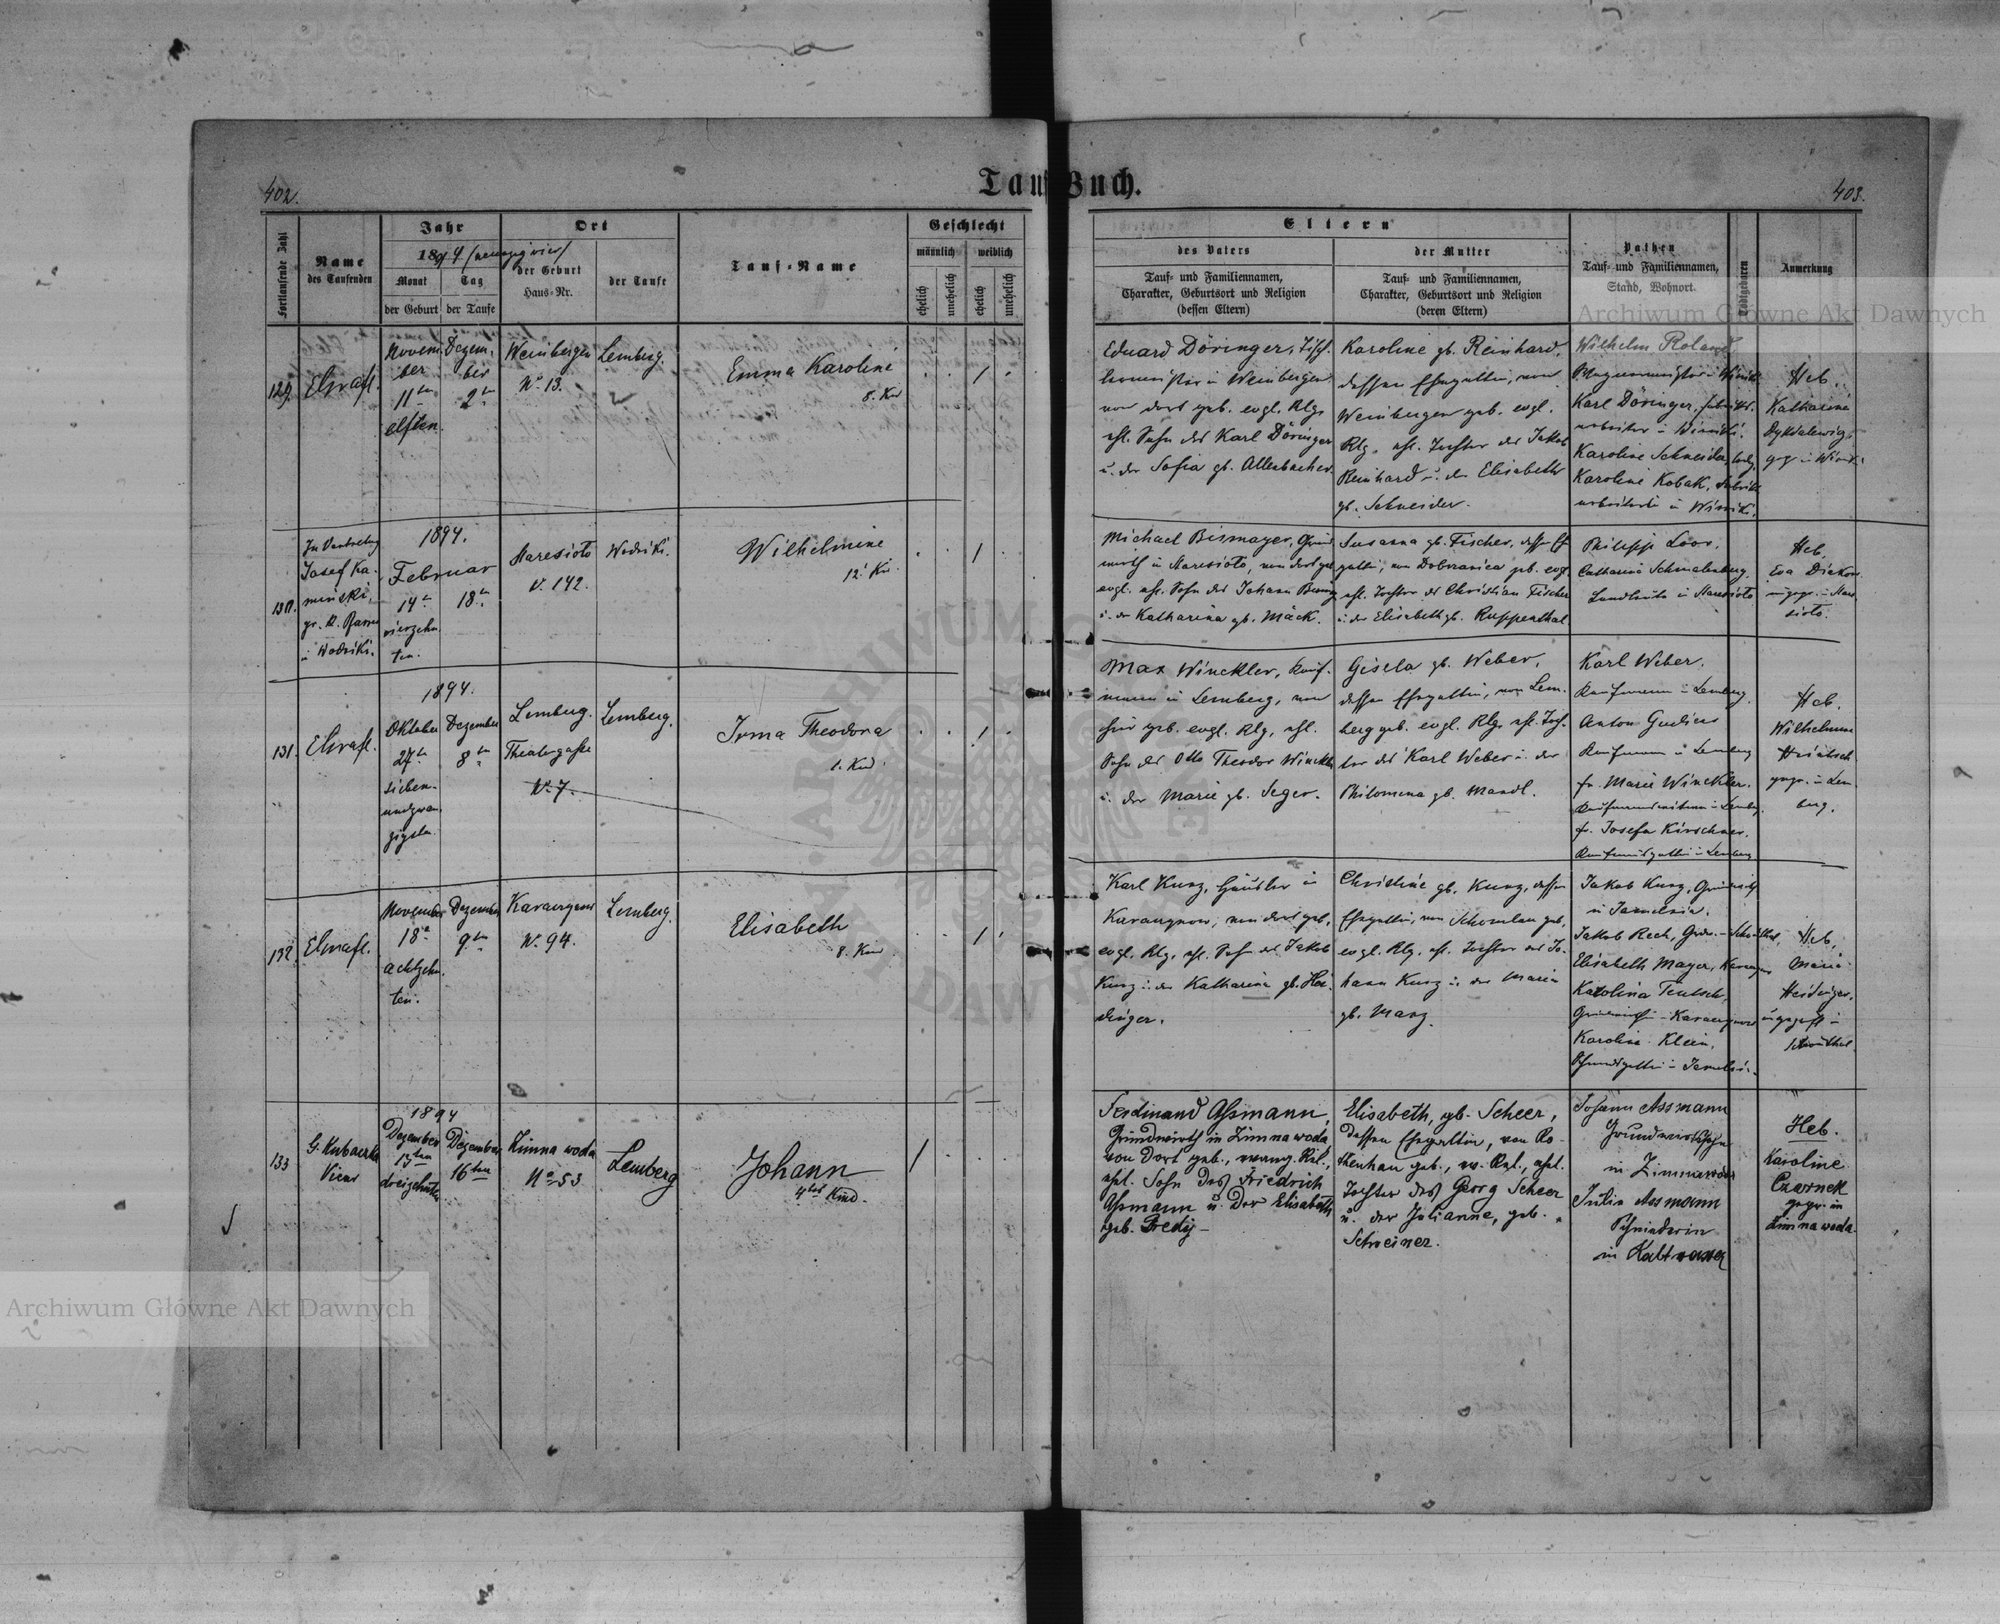 402.
Tauf-Buch.
403.
Fortlaufende Zahl
Name
des Taufenden
Jahr
1894 (neunzigvier)
Monat
Tag
der Geburt
der Taufe
Ort
der Geburt
Haus-Nr.
der Taufe
Tauf-Name
Geschlecht
männlich
weiblich
ehelich
unehelich
ehelich
unehelich
Eltern
des Vaters
Tauf- und Familiennamen,
Charakter, Geburtsort und Religion
(dessen Eltern)
der Mutter
Tauf- und Familiennamen,
Charakter, Geburtsort und Religion
(deren Eltern)
Pathen
Tauf- und Familiennamen,
Stand, Wohnort
Todtgeboren
Anmerkung
Archiwum Główne Akt Dawnych
129.
Novem-
ber
11ten
elften
Dezem-
ber
2ten
Weinbergen
No 13.
Lemberg.
Emma Karoline
8. Kind
Eduard Döringer, Tisch-
in Weinbergen
von dort geb. evgl. Rlg.
ehl. Sohn des Karl Döringer
u. der Sofia gb. Allenbacher.
Karoline gb. Reinhard,
dessen Ehegattin, von
Weinbergen geb. evgl.
Rlg. ehl. Tochter des Jakob
Reinhard u. der Elisabeth
gb. Schneider.
Wilhelm Roland
Karl Döringer,
Karoline Schneider,
Karoline Kobak,
Heb.
Katharina
130.
In Vertretung
Josef Ka-
minski,
1894.
Februar
14ten
vierzehn-
ten.
18ten
Staresioło
N. 142.
Wodniki.
Wilhelmine
12. Kind
Michael Bismayer, Grund-
wirth in Staresioło, von dort geb.
evgl. ehl. Sohn des Johann
u. der Katharina gb. Mäck.
Susanna gb. Fischer, dessen Eh-
gattin, von Dobrzanica geb. evgl.
ehl. Tochter des Christian Fischer
u. der Elisabeth gb. Ruppenthal.
Philipp Loos,
Catharina Schmalenberg,
Landleute in Staresioło
Heb.
Eva
131.
1894.
Oktober
27ten
sieben-
undzwan-
zigsten
Dezember
8ten
Lemberg.
Theatergasse
N. 7.
Lemberg.
Irma Theodora
1. Kind
Max Winckler, Kauf-
mann in Lemberg, von
hier geb. evgl. Rlg. ehl.
Sohn des Otto Theodor Winckler
u. der Marie gb. Seger.
Gisela gb. Weber,
dessen Ehegattin, von Lem-
berg geb. evgl. Rlg. ehl. Toch-
ter des Karl Weber u. der
Philomena gb. Mandl.
Karl Weber,
Kaufmann in Lemberg
Anton
Kaufmann in Lemberg
fr. Marie Winckler,
fr. Josefa Kirschner,
Kaufmannsgattin in Lemberg
Heb.
Wilhelmine
in Lem-
berg.
132.
November
18ten
achtzehn-
ten.
Dezember
9ten
N. 94.
Lemberg.
Elisabeth
8. Kind
Karl Kurz, Häusler in
von dort geb.
evgl. Rlg. ehl. Sohn des Jakob
Kurz u. der Katharina gb. Hei-
dinger.
Christine gb. Kurz, dessen
Ehegattin, von geb.
evgl. Rlg. ehl. Tochter des Jo-
hann Kurz u. der Maria
gb. Manz.
Jakob Kurz, Grundwirth
Jakob Rech,
Elisabeth Mayer,
Karolina Teutsch,
Karoline Klein,
Heb.
Maria
Heidinger,
133
Vicar
1894
Dezember
13ten
dreizehnten
Dezember
16ten
Zimna woda
No 53
Lemberg
Johann
4tes Kind.
Ferdinand Aßmann,
Grundwirth in Zimna woda,
von dort geb., evang. Rel.,
ehl. Sohn des Friedrich
Aßmann u. der Elisabeth
geb. Bredy
Elisabeth, gb. Scheer,
dessen Ehegattin, von Ro-
thenhan geb., ev. Rel., ehel.
Tochter des Georg Scheer
u. der Julianne, geb.
Schreiner.
Johann Assmann
Grundwirthssohn
in Zimnawoda
Julia Assmann
in Kaltwasser
Heb.
Karoline
Czarnek
gepr. in
Zimna woda
Archiwum Główne Akt Dawnych